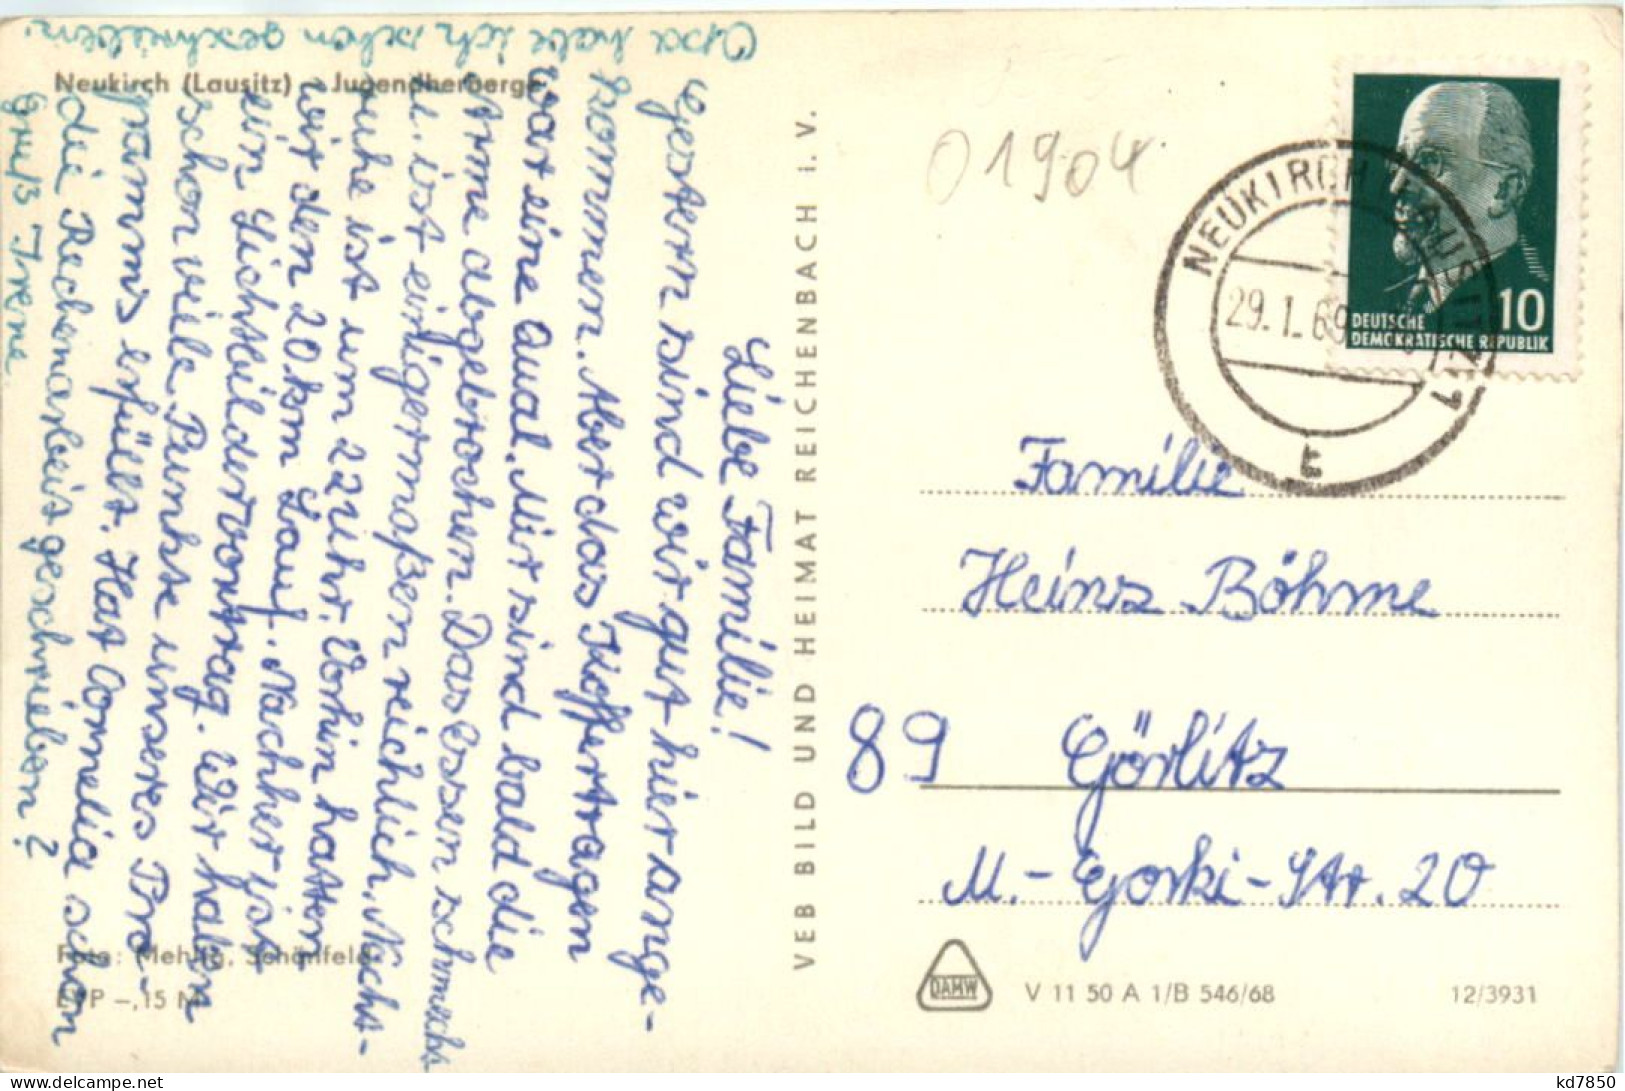 Opa habe ich schon geschrieben.
Neukirch (Lausitz) - Jugendherberge
Liebe Familie!
Gestern sind wir gut hier ange-
kommen. Aber das Koffertragen
war eine Qual. Mir sind bald die
Arme abgebrochen. Das Essen schmeckt
u. ist einigermaßen reichlich. Nacht-
ruhe ist um 22 Uhr. Vorhin hatten
wir den 20. km Lauf. Nachher ist
ein Lichtbildervortrag. Wir haben
schon viele Punkte unseres Pro-
gramms erfüllt. Hat Cornelia schon
die Rechenarbeit geschrieben?
Gruß Irene.
Foto: Mehlig, Schönfeld
EVP -,15 M
VEB BILD UND HEIMAT REICHENBACH I. V.
01904
NEUKIRCH (LAUSITZ) 1
29.1.69
t
10
DEUTSCHE
DEMOKRATISCHE REPUBLIK
Familie
Heinz Böhme
89 Görlitz
M.-Gorki-Str. 20
DAHW
V 11 50 A 1/B 546/68
12/3931
kd7850